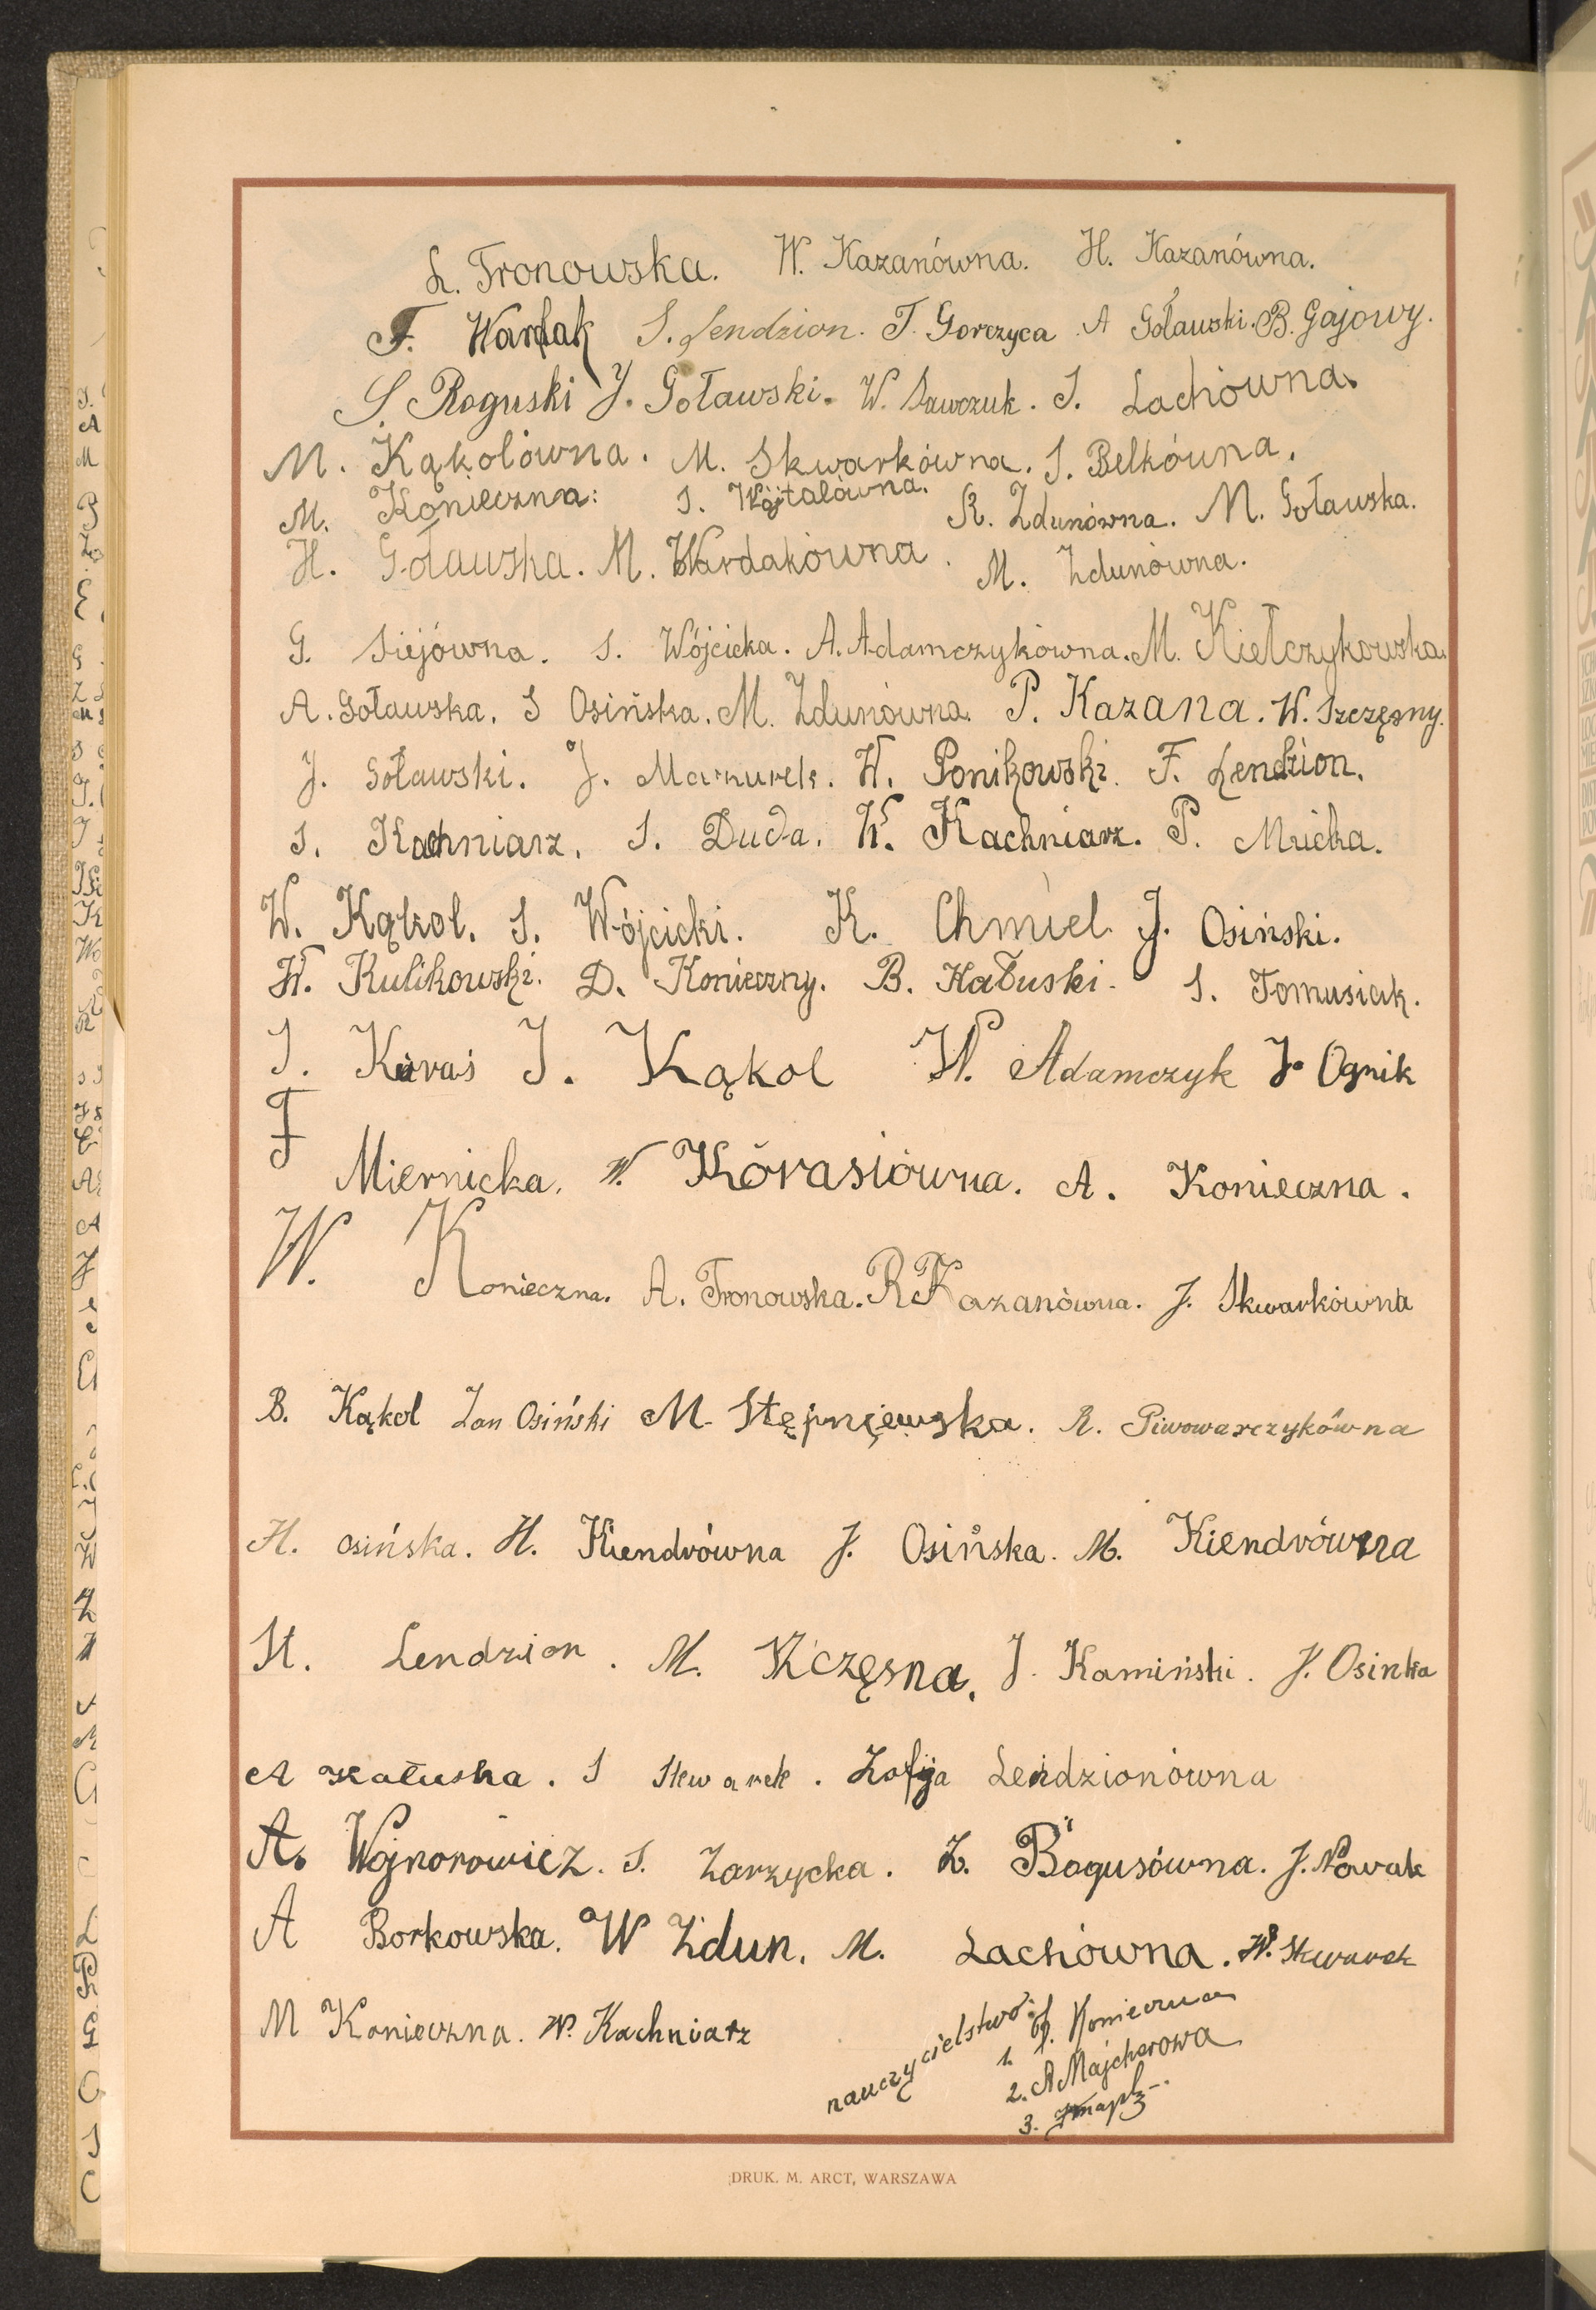 L. Tronowska. W. Kazanówna. H. Kazanówna.
F. Wardak S. Lendzion. T. Gorczyca A Goławski. B. Gajowy.
S. Roguski J. Goławski. W. Sawczuk. S. Lachówna.
M. Kąkolówna. M. Skwarkówna. S. Belkówna.
M. Konieczna. S. Wójtalówna. R. Zdunówna. M. Goławska.
H. Goławska. M. Wardakówna. M. Zdunówna.
G. Siejówna. S. Wójcicka. A. Adamczykówna. M. Kiełczykowska.
A. Goławska. S Osińska. M. Zdunówna. P. Kazana. W. Szczęsny.
J. Goławski. J. Mazurek. W. Ponikowski. F. Lendzion.
S. Kachniarz. S. Duda. W. Kachniarz. P. Mućka.
W. Kąkol. S. Wójcicki. K. Chmiel J. Osiński.
W. Kulikowski. D. Konieczny. B. Kałuski. S. Tomusiak.
J. Karaś J. Kąkol W. Adamczyk J. Ognik
F Miernicka. W. Kórasiówna. A. Konieczna.
W. Konieczna. A. Tronowska. R Kazanówna. J. Skwarkówna
B. Kąkol Jan Osiński M. Stępniewska. R. Piwowarczykówna
H. Osińska. H. Kiendrówna J. Osińska. M. Kiendrówna
St. Lendzion. M. J. Kamiński. J. Osinka
A Kałuska. S Skwarek. Zofja Lendzionówna
A. Wojnorowicz. S. Zarzycka. Z. Bogusówna. J. Nowak
A Borkowska. W Zdun. M. Lachówna. W. Skwarek
M Konieczna. W. Kachniarz
nauczycielstwo:
1. Konieczna
2. A Majcherowa
3.
DRUK. M. ARCT, WARSZAWA